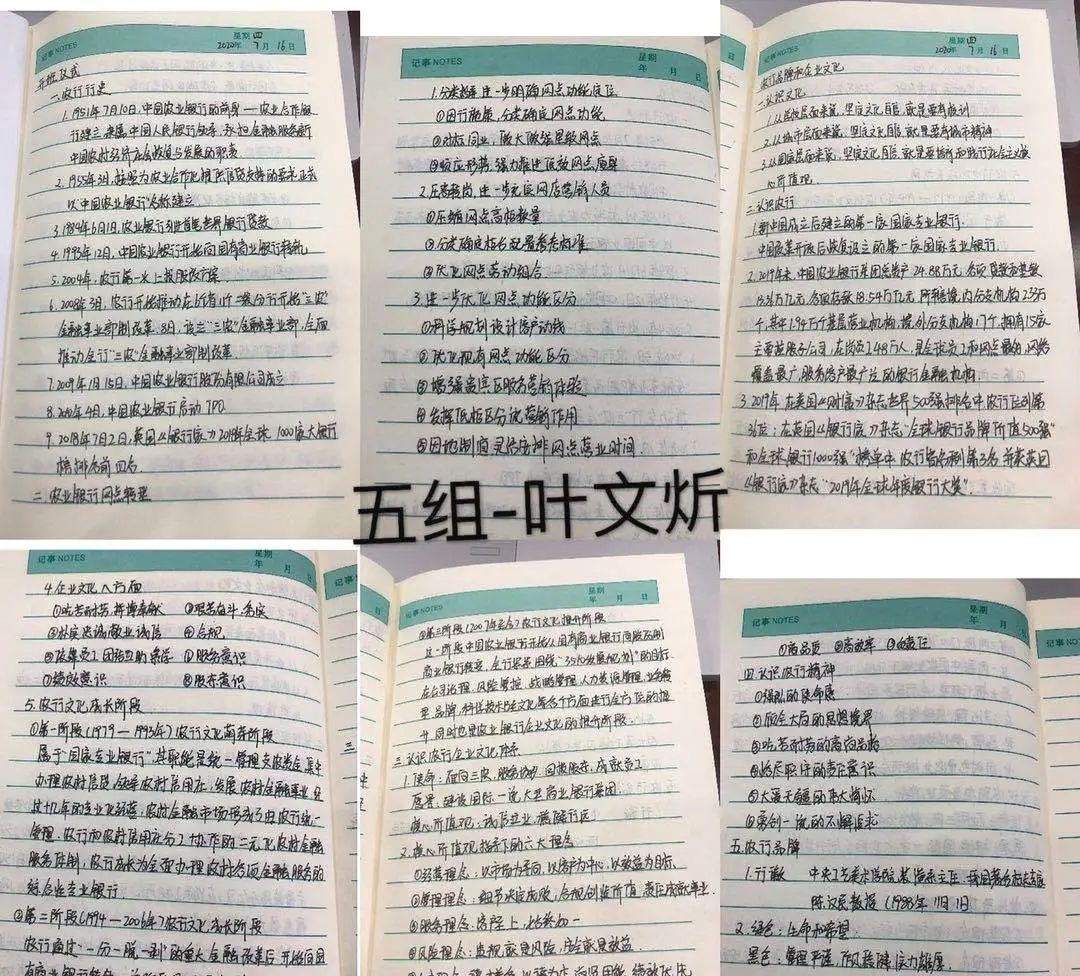 记事 NOTES
星期四
2020年 7月 16日
开班仪式
一.农行行史
1.1951年7月10日,中国农业银行的前身——农业合作银
行建立,隶属中国人民银行领导,承担金融服务新
中国农村经济社会恢复与发展的职责.
2.1955年3月,按照为农业合作化提供信贷支持的要求,正式
以"中国农业银行"名称建立
3.1894年6月1日,农业银行
4.1993年12月,中国农业银行开始向国有商业银行转轨
5.2004年,农行第一次上报股改方案
6.2008年3月,农行开始推动在6个省11个二级分行开始"三农"
金融事业部制改革,8月,设立"三农"金融事业部,全面
推动全行"三农"金融事业部制改革.
7.2009年1月15日,中国农业银行股份有限公司成立
8.2010年4月,中国农业银行启动IPO
9.2018年7月2日,英国《银行家》2018年全球1000家大银行
榜排名前四名.
二.农业银行网点转型
记事 NOTES
星期
年 月 日
1.分类指导,进一步明确网点功能定位
①因行施策,分类确定网点功能
②对标同业,做大做强星级网点
③顺应形势,强力推进低效网点
2.压高柜岗,进一步充实网店营销人员
①压缩网点高柜数量
②分类确定柜台配置参考标准
③优化网点劳动组合
3.进一步优化网点功能区分
①科学规划设计客户动线
②优化现有网点功能区分
③增强贵宾区服务营销体验
④发挥低柜区分流营销作用
⑤因地制宜灵活安排网点营业时间.
记事 NOTES
星期四
2020年 7月 16日
农行品牌和企业文化
一.认识文化
1.从民族层面来说,坚定文化自信,就是要有
2.从城市层面来说,坚定文化自信,就是要有城市精神
3.从国家层面来说,坚定文化自信,就是要培育和践行社会主义核
心价值观.
二.认识农行
1.新中国成立后建立的第一家国家专业银行.
中国改革开放后恢复设立的第一家国家专业银行.
2.2019年末,中国农业银行集团总资产24.88万元,各项贷款和垫款
13.36万亿元,各项存款18.54万亿元,所辖境内分支机构2.3万
个,其中1.94万个基层营业机构,境外分支机构17个,拥有15家
主要控股子公司,在岗员工48万人,是全球员工和网点最多,网络
覆盖最广,服务客户最广泛的银行金融机构
3.2019年,在美国《财富》杂志世界500强排名中,农行位列第
36位;在英国《银行家》杂志"全球银行品牌价值500强"
和"全球银行1000强"榜单中,农行皆名列第3名,并获英国
《银行家》杂志"2019年全球年度银行大奖".
五组-叶文炘
记事 NOTES
星期
年 月 日
4.企业文化八方面
①吃苦耐劳,拼搏奉献 ②艰苦奋斗,务实
③朴实忠诚,敬业诚信 ④合规.
⑤依靠员工团结互助 ⑥服务意识
⑦绩效意识 ⑧股东意识
5.农行文化成长阶段
①第一阶段(1979—1993年)农行文化萌芽阶段
属于"国家专业银行",其职能是统一管理支农资金,集中
办理农村信贷,领导农村信用社,发展农村金融事业,经
过十几年的专业化经营,农村金融市场形成了由农行统一
管理,农行和农村信用社分工协作的二元化农村金融
服务体制,农行成长为全面办理农村各项金融服务的
综合性专业银行
②第二阶段(1994—2006年)农行文化成长阶段
农行通过"一分一脱一剥"的重大金融改革后,开始向国
有商业银行
记事 NOTES
星期
年 月 日
③第三阶段(2007年至今)农行文化提升阶段
这一阶段中国农业银行开始从国有商业银行向股份制
商业银行转变,全行紧紧围绕"3510发展规划"的目标,
在公司治理,风险管控,战略管理,人力资源管理,
品牌,科技技术和企业文化等各个方面进行全方位的提
升,同时也是农业银行企业文化的提升阶段.
三.认识农行企业文化体系
1.使命:面向三农,服务城乡,回报股东,成就员工
愿景:建设国际一流大型商业银行集团
核心价值观:诚信立业,稳健行远
2.核心价值观指导下的六大理念
①经营理念:以市场为导向,以客户为中心,以效益为目标.
②管理理念:细节决定成败,合规创造价值,责任成就事业.
③服务理念:客户至上,始终如一
④风险理念:违规就是风险,安全就是效益
记事 NOTES
星期
年 月 日
①高品质 ②高效率 ③
四.认识农行精神
①强烈的使命感
②顾全大局的思想境界
③吃苦耐劳的高尚品格
④恪尽职守的责任意识
⑤大爱无疆的博大情怀
⑥勇创一流的不懈追求
五.农行品牌
1.行徽 中央工艺美术学院装潢系主任、我国著名
陈汉民教授(1988年11月1日
2.绿色:生命和希望
黑色: